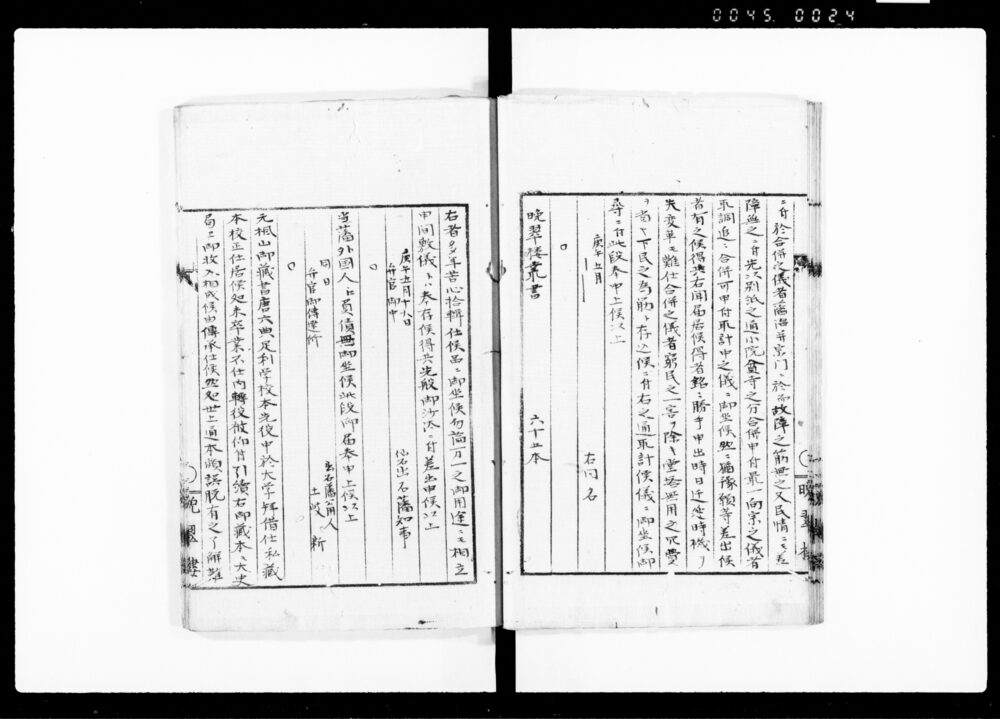 0045. 0024
ニ付於合併之儀者藩治并寺門ニ於而故障之筋無之又民情ニモ差
障無之ニ付先以別紙之通小院貧寺之分合併申付最一向宗之儀者
取調追々合併可申付取計申之儀ニ御坐候然ニ猶豫願等差出候
者有之候得共右聞届居候得者銘々勝手申出時日迁延時機ヲ
失変革モ難仕合併之儀者窮民之一害ヲ除キ堂塔無用之冗費
ヲ省キ下民之為筋ト存込候ニ付右之通取計候儀ニ御坐候御
尋ニ付此段奉申上候以上
庚午五月
右同名
○
晩翠楼叢書
六十五本
右者多年苦心拾輯仕候品ニ御坐候万一之御用途ニモ相立
申間敷儀トハ奉存候得共先般御沙汰ニ付差出申候以上
庚午五月十八日
仙石出石藩知事
弁官御中
○
当藩外国人江負債無御坐候此段御届奉申上候以上
同日
出石藩公用人
土岐新
弁官御傳達所
○
元楓山御蔵書唐六典足利学校本先役中於大学拜借仕私蔵
本校正仕居候処未卒業不仕内轉役被仰付引續右御蔵本ハ大史
局ニ御收入相成候由傳承仕候然処世上通本頗誤脱有之了解難
晩翠樓